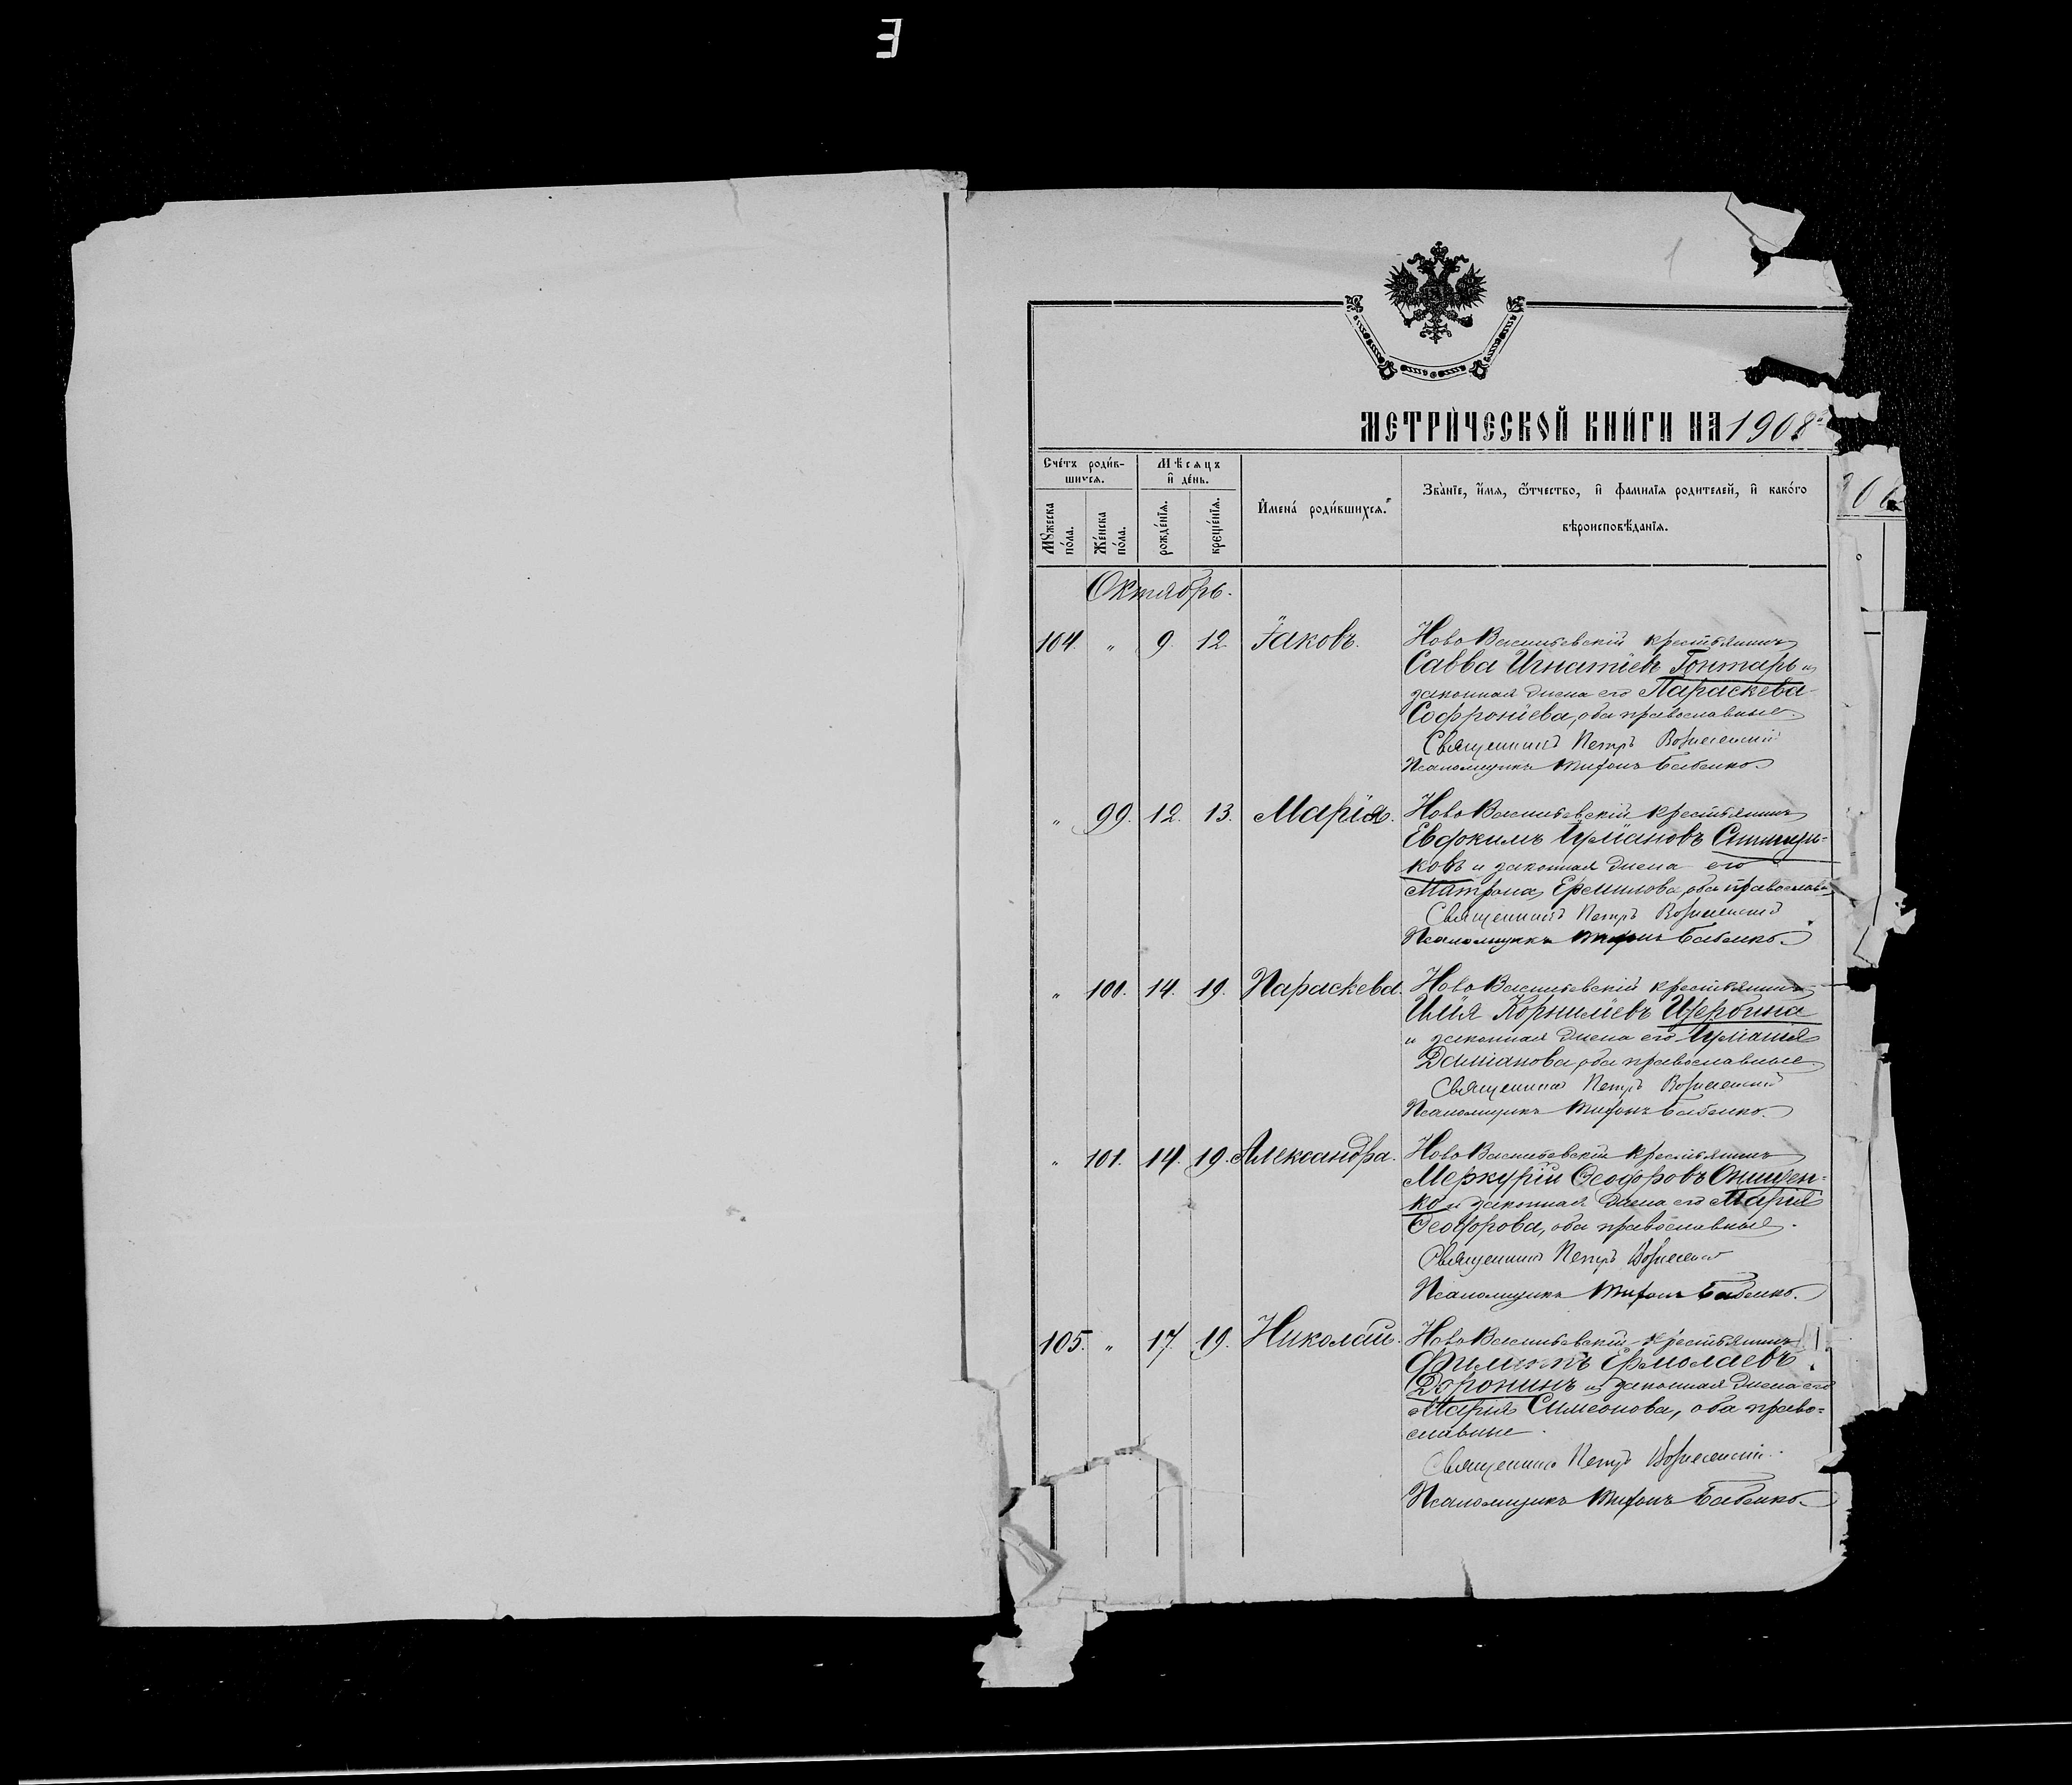 1
МЕТРИ́ЧЕСКОЙ КНИ́ГИ НА 1908
Сче́тъ роди́в-
шихся.
Мѣ́сяцъ
и҆ де́нь.
Мꙋжеска
по́ла.
Же́нска
по́ла.
рожде́нїѧ.
креще́нїѧ.
И҆мена́ роди́вшихсѧ.
Зва́нїе, и҆́мѧ, ѻ҆́тчество, и҆ фами́лїѧ роди́телей, и҆ како́го
вѣроисповѣ́данїѧ.
Октябрь.
104. " 9. 12 Іаковъ.
НовоВасильевскій крестьянинъ
Савва Игнатіевъ Гонтарь и
законная жена его Параскева
Софроніева, оба православные.
Священникъ Петръ Вознесенскій
Псаломщикъ Тифонъ Бабенко.
" 99. 12. 13. Марія.
НовоВасильевскій крестьянинъ
Евфокимъ
ковъ и законная жена его
Матрона Ермилова, оба православн
Священникъ Петръ Вознесенскій
Псаломщикъ Тифонъ Бабенко.
" 100. 14. 19. Параскева.
НовоВасильевскій крестьянинъ
Илія Корниліевъ Щербина
и законная жена его Іуліанія
Даміанова, оба православные.
Священникъ Петръ Вознесенскій
Псаломщикъ Тифонъ Бабенко.
" 101. 14. 19. Александра.
НовоВасильевскій крестьянинъ
Меркурій Ѳеодоровъ Онищен-
ко и законная жена его Марія
Ѳеодорова, оба православные.
Священникъ Петръ Вознесенскій
Псаломщикъ Тифонъ Бабенко.
105. " 17. 19. Николай.
НовоВасильевскій крестьянинъ
Филиппъ Ермолаевъ
Доронинъ и законная жена его
Марія Симеонова, оба право=
славные.
Священникъ Петръ Вознесенскій
Псаломщикъ Тифонъ Бабенко.